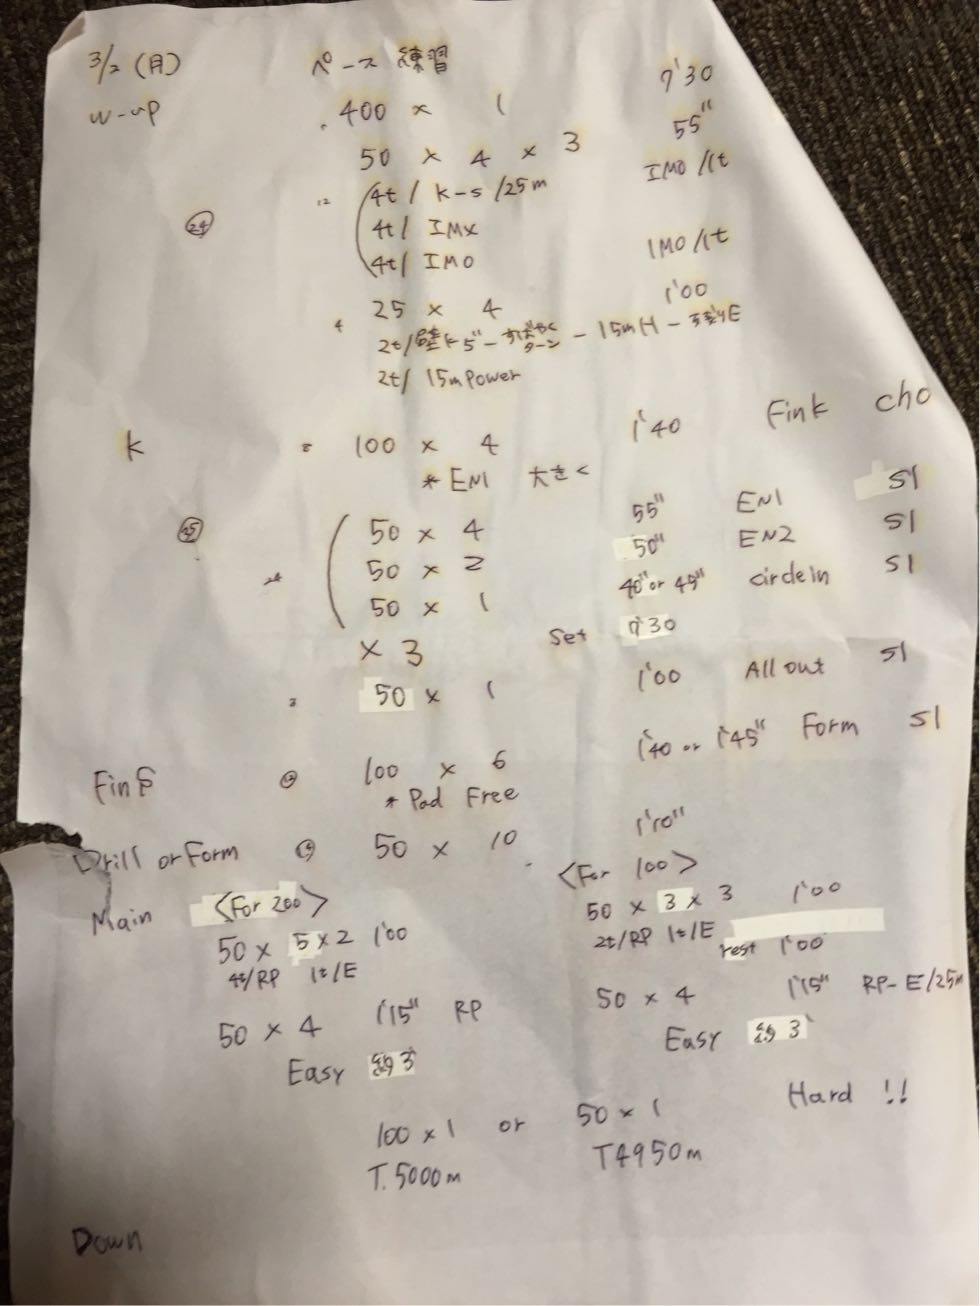 3/2 (月) ペース 練習
W-up 400 × 1 7'30
50 × 4 × 3 55"
12 4t / K-S /25m IMO /1t
24 4t / IMX
4t / IMO IMO /1t
25 × 4 1'00
4 2t/壁K5"-すばやくターン-15mH-すぐE
2t/ 15m Power
K 8 100 × 4 1'40 Fink cho
* EN1 大きく
50 × 4 55" EN1 S1
35 50 × 2 50" EN2 S1
50 × 1 40" or 45" circle in S1
× 3 Set 7'30
2 50 × 1 1'00 All out S1
Fin S 100 × 6 1'40 or 1'45" Form S1
* Pad Free
Drill or Form 50 × 10 1'10"
Main <For 200> <For 100>
50 × 5 × 2 1'00 50 × 3 × 3 1'00
4t/RP 1t/E 2t/RP 1t/E rest 1'00
50 × 4 1'15" RP 50 × 4 1'15" RP-E/25m
Easy 約3' Easy 約3'
100 × 1 or 50 × 1 Hard !!
T.5000m T4950m
Down